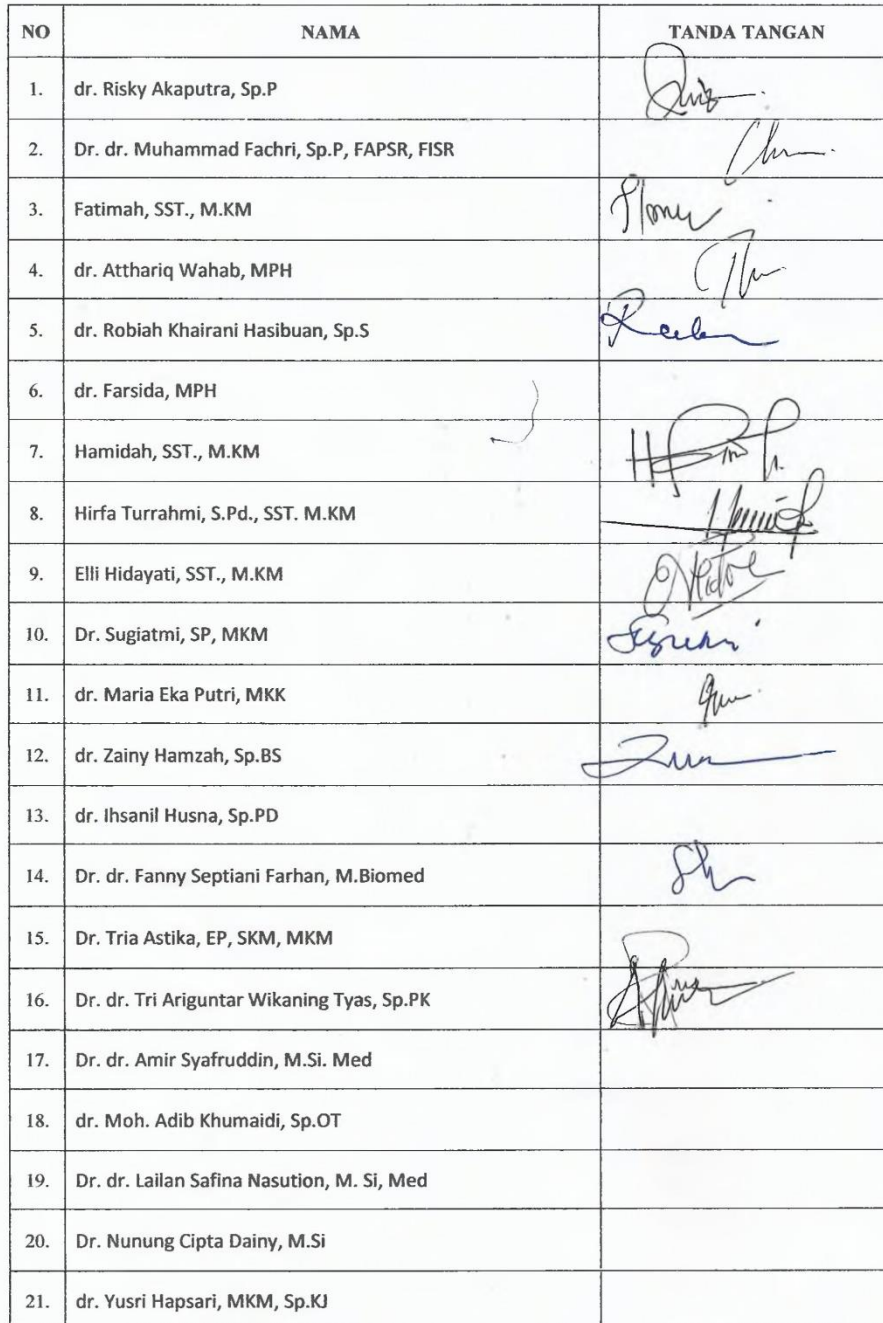 NO NAMA TANDA TANGAN
1. dr. Risky Akaputra, Sp.P
2. Dr. dr. Muhammad Fachri, Sp.P, FAPSR, FISR
3. Fatimah, SST., M.KM
4. dr. Atthariq Wahab, MPH
5. dr. Robiah Khairani Hasibuan, Sp.S
6. dr. Farsida, MPH
7. Hamidah, SST., M.KM
8. Hirfa Turrahmi, S.Pd., SST. M.KM
9. Elli Hidayati, SST., M.KM
10. Dr. Sugiatmi, SP, MKM
11. dr. Maria Eka Putri, MKK
12. dr. Zainy Hamzah, Sp.BS
13. dr. Ihsanil Husna, Sp.PD
14. Dr. dr. Fanny Septiani Farhan, M.Biomed
15. Dr. Tria Astika, EP, SKM, MKM
16. Dr. dr. Tri Ariguntar Wikaning Tyas, Sp.PK
17. Dr. dr. Amir Syafruddin, M.Si. Med
18. dr. Moh. Adib Khumaidi, Sp.OT
19. Dr. dr. Lailan Safina Nasution, M. Si, Med
20. Dr. Nunung Cipta Dainy, M.Si
21. dr. Yusri Hapsari, MKM, Sp.KJ